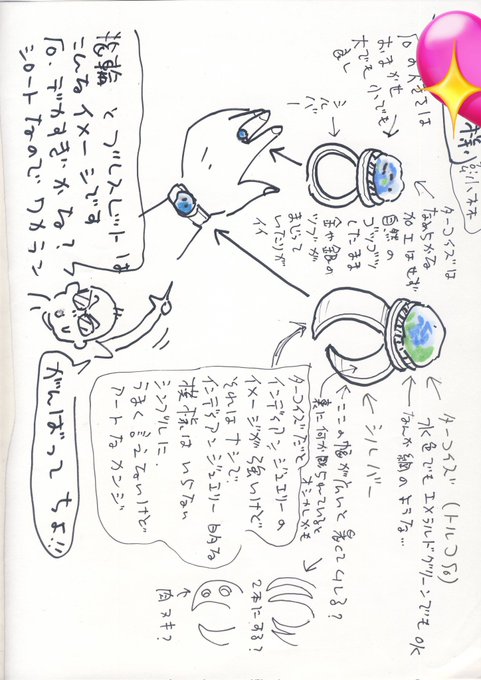 ターコイズ(トルコ石)
水色でもエメラルドグリーンでもOK
なんか網のような…
シルバー
ここの幅が広いと暑くてムレる?
裏に何か彫られていると
オシャレかも
石の大きさは
おまかせ
大でも小でも
良し
シルバー
ターコイズは
なめらかな
加工はせず
自然の
ゴツゴツ
したまま
金や銀の
ツブが
まじって
いたりが
イイ
ターコイズだと
インディアンジュエリーの
イメージが強いけど
それはナシで
インディアンジュエリー的な
模様はいらない
シンプルに
うまく言えないけど
アートなカンジ
2本にする?
肉ヌキ?
指輪とブレスレットは
こんなイメージです
石、デカすぎかな?
シロートなので
がんばってちょ!!